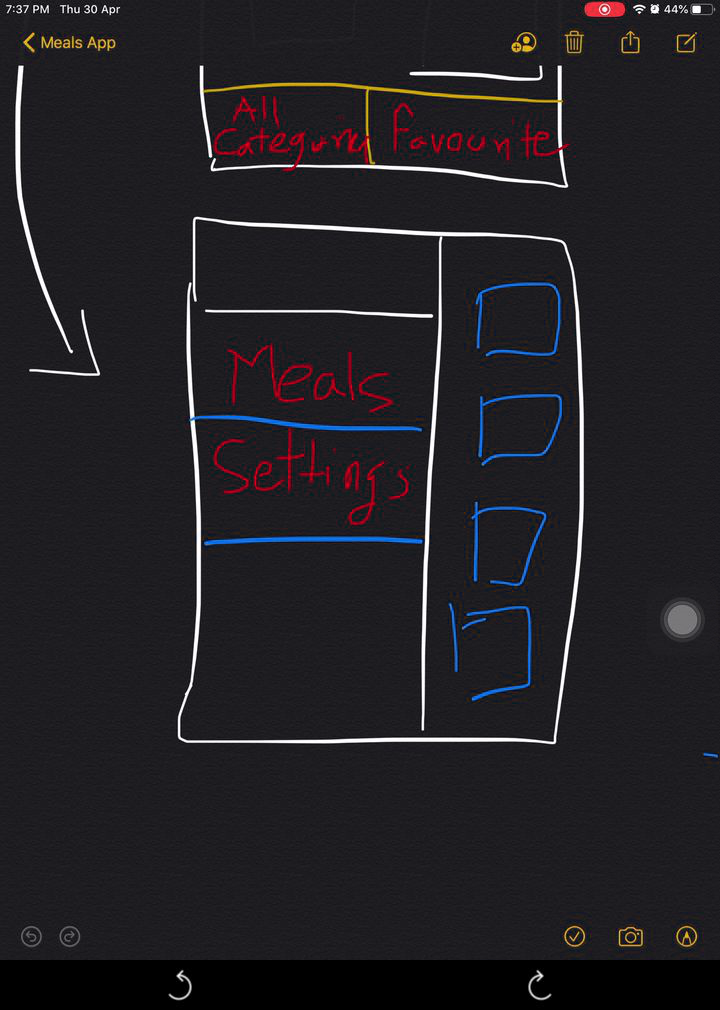 7:37 PM Thu 30 Apr
44%
Meals App
All
Category
Favourite
Meals
Settings